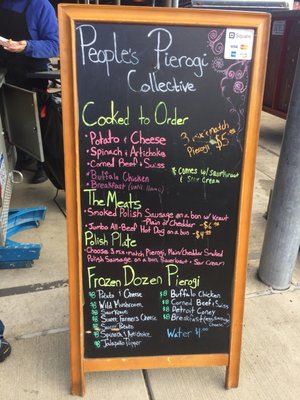 People's Pierogi
Collective
Square
VISA
Cooked to Order
• Potato & Cheese
• Spinach & Artichoke
• Corned Beef & Swiss
• Buffalo Chicken
• Breakfast
3 mix & match
Pierogi $5
* comes w/ saurkraut
& Sour Cream
The Meats
• Smoked Polish Sausage on a bun w/ Kraut
Plain or Cheddar
• Jumbo All-Beef Hot Dog on a bun
Polish Plate
• Choose 3 mix & match Pierogi, Plain/Cheddar Smoked
Polish Sausage on a bun, Saurkraut & Sour Cream
Frozen Dozen Pierogi
$8 Potato & Cheese
$8 Wild Mushroom
$8 Saurkraut
$8 Sweet Farmers Cheese
$8 Sweet Potato
$8 Spinach & Artichoke
$8 Jalapeño Popper
$8 Buffalo Chicken
$8 Corned Beef & Swiss
$8 Detroit Coney
$8 Breakfast
Water $1.00